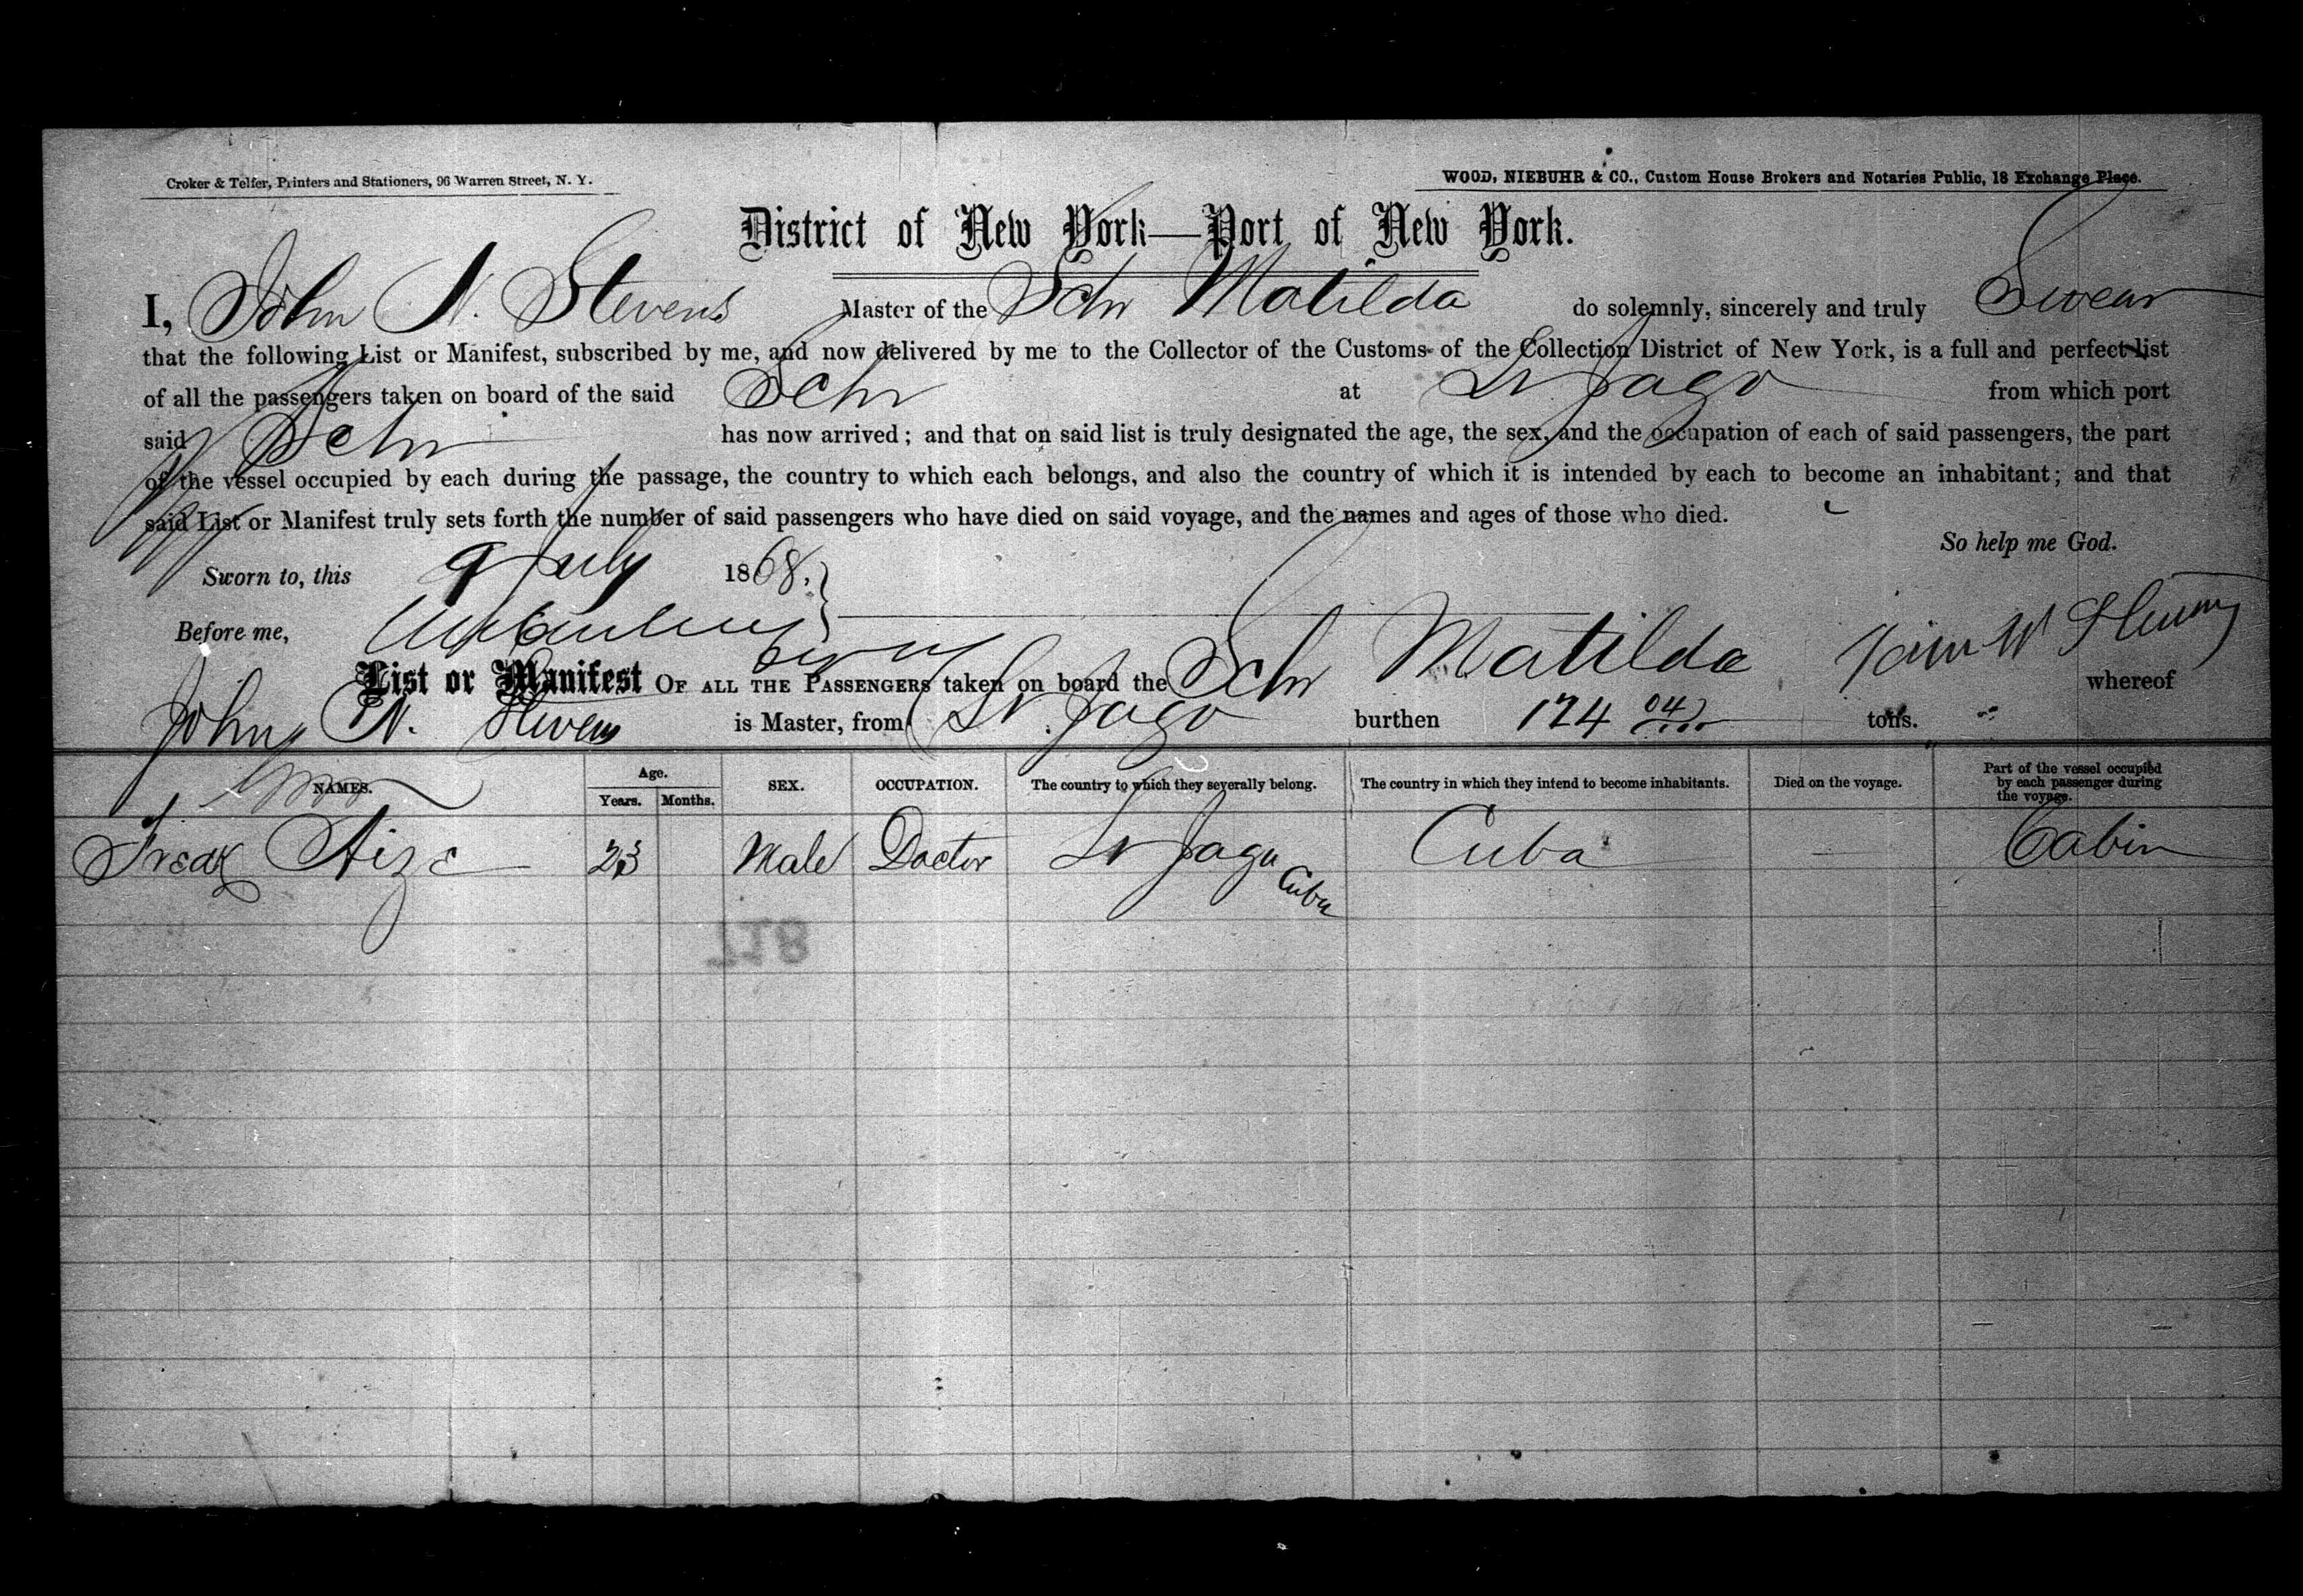 Croker & Telfer, Printers and Stationers, 96 Warren Street, N. Y.
WOOD, NIEBUHR & CO., Custom House Brokers and Notaries Public, 18 Exchange Place.
District of New York—Port of New York.
I, John N. Stevens Master of the Schr Matilda do solemnly, sincerely and truly Swear
that the following List or Manifest, subscribed by me, and now delivered by me to the Collector of the Customs of the Collection District of New York, is a full and perfect list
of all the passengers taken on board of the said Schr at St Jago from which port
said Schr has now arrived; and that on said list is truly designated the age, the sex, and the occupation of each of said passengers, the part
of the vessel occupied by each during the passage, the country to which each belongs, and also the country of which it is intended by each to become an inhabitant; and that
said List or Manifest truly sets forth the number of said passengers who have died on said voyage, and the names and ages of those who died.
So help me God.
Sworn to, this 9 July 1868,
Before me,
List or Manifest OF ALL THE PASSENGERS taken on board the Schr Matilda whereof
John N. Stevens is Master, from St Jago burthen 174 04 tons.
NAMES. Age. Years. Months. SEX. OCCUPATION. The country to which they severally belong. The country in which they intend to become inhabitants. Died on the voyage. Part of the vessel occupied by each passenger during the voyage.
Fredk Aize 23 Male Doctor St Jago Cuba Cuba — Cabin
718